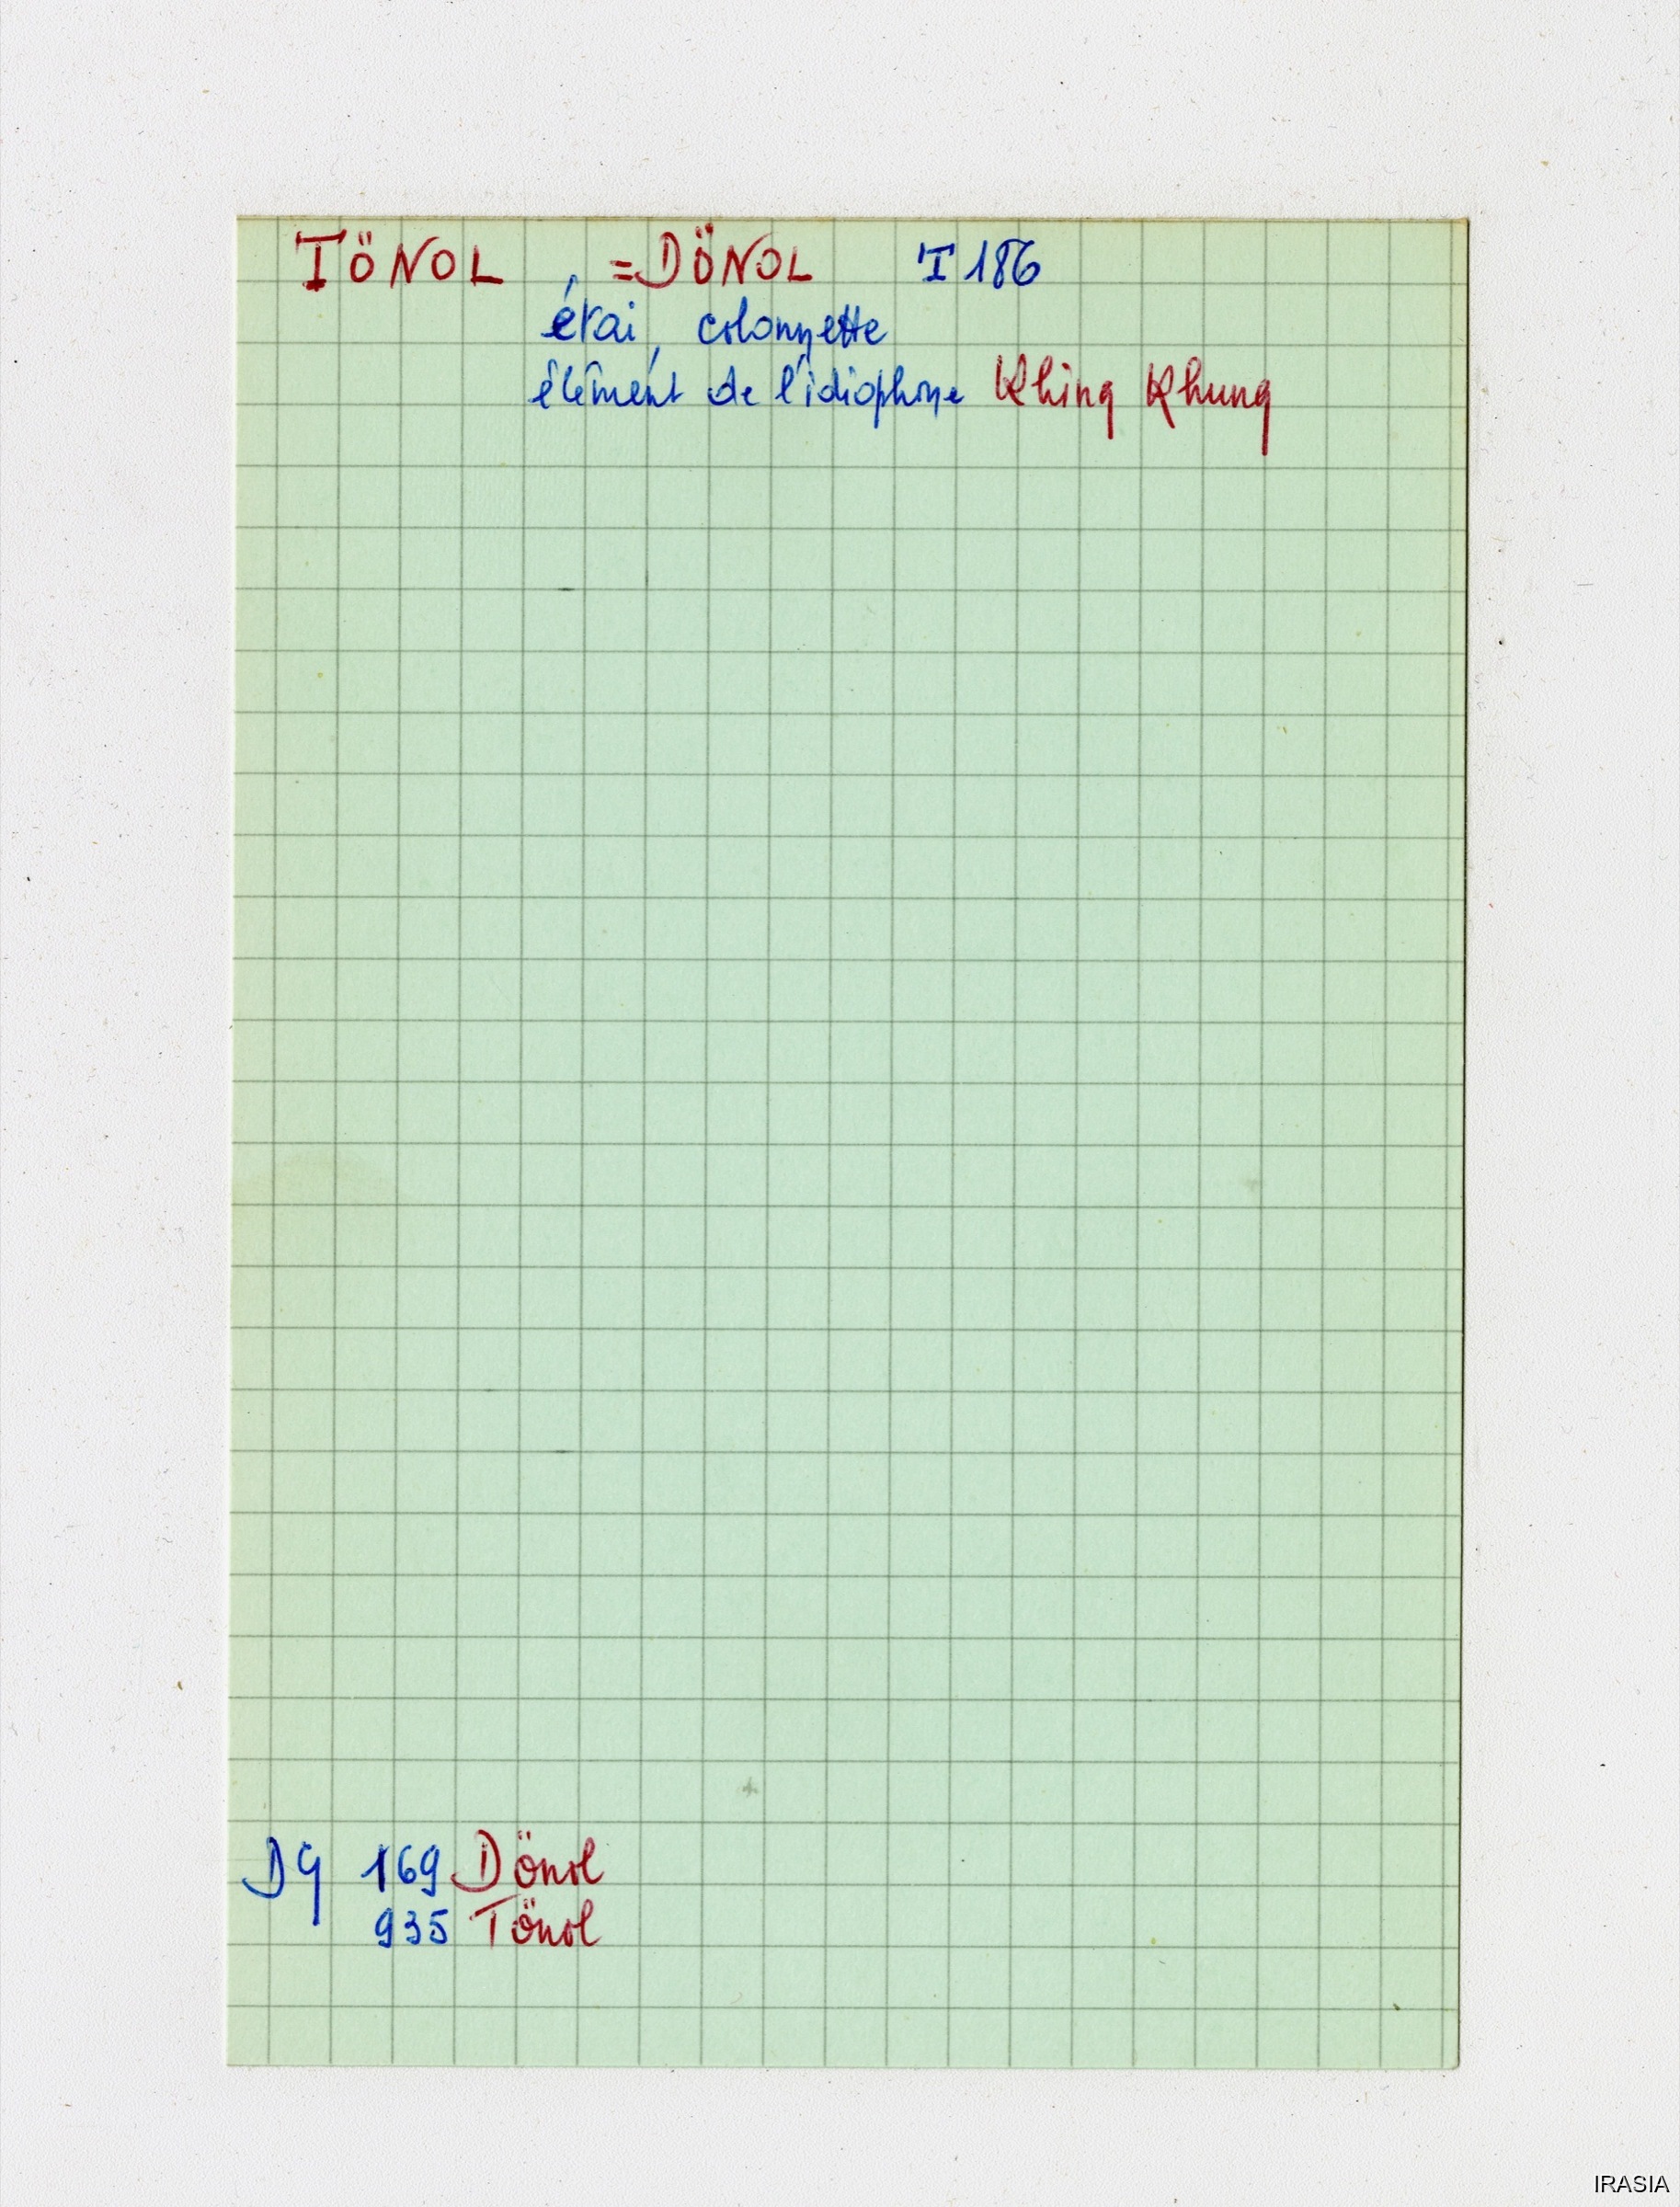 TÖNOL = DÖNOL T 186
étai, colonnette
élément de l'idiophone Khing Khung
DG 169 Dönol
935 Tönol
IRASIA